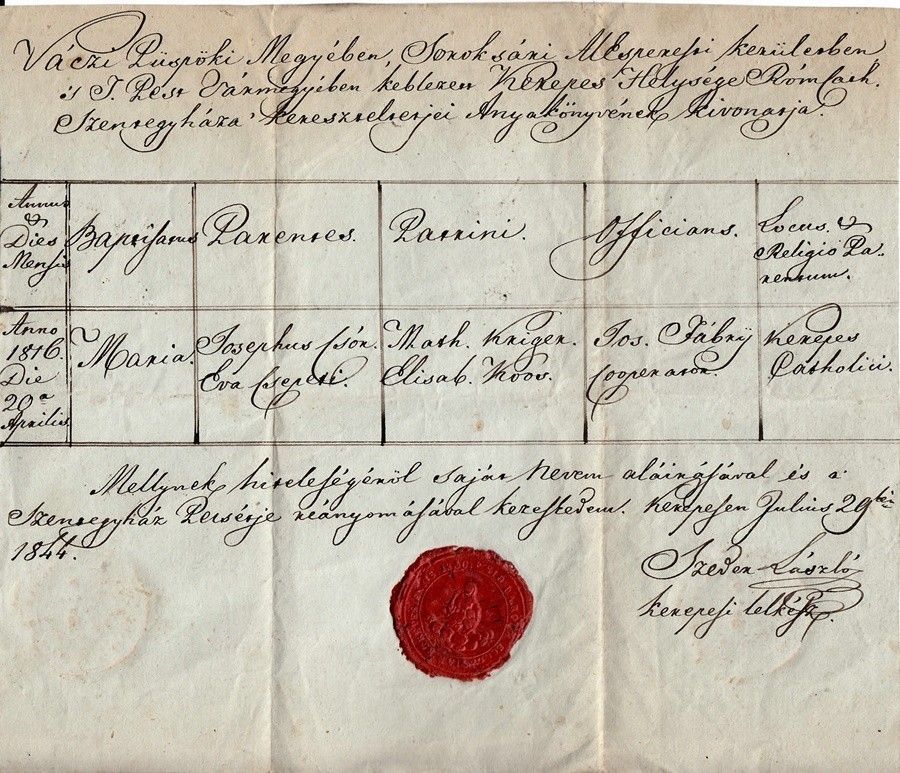 Váczi Püspöki Megyében, Soroksári Alesperesti kerületben
's T. Pest Vármegyében keblezett Kerepes Helysége Rómcath.
Szentegyháza' kereszteltetjei Anyakönyvének kivonatja.
Annus & Dies Mensis
Baptisatus
Parentes.
Patrini.
Officians.
Locus. & Religio Parentum.
Anno 1816. Die 20a Aprilis
Maria.
Josephus Csór. Eva Csepeti.
Math. Kriger. Elisab. Koos.
Jos. Fábrÿ Cooperator.
Kerepes Catholici.
Mellynek hiteleségéről saját nevem aláirásával és a'
Szentegyház Petsétje reányomásával kezeskedem. Kerepesen Julius 29tén
1844.
Szeder László
kerepesi lelkész.